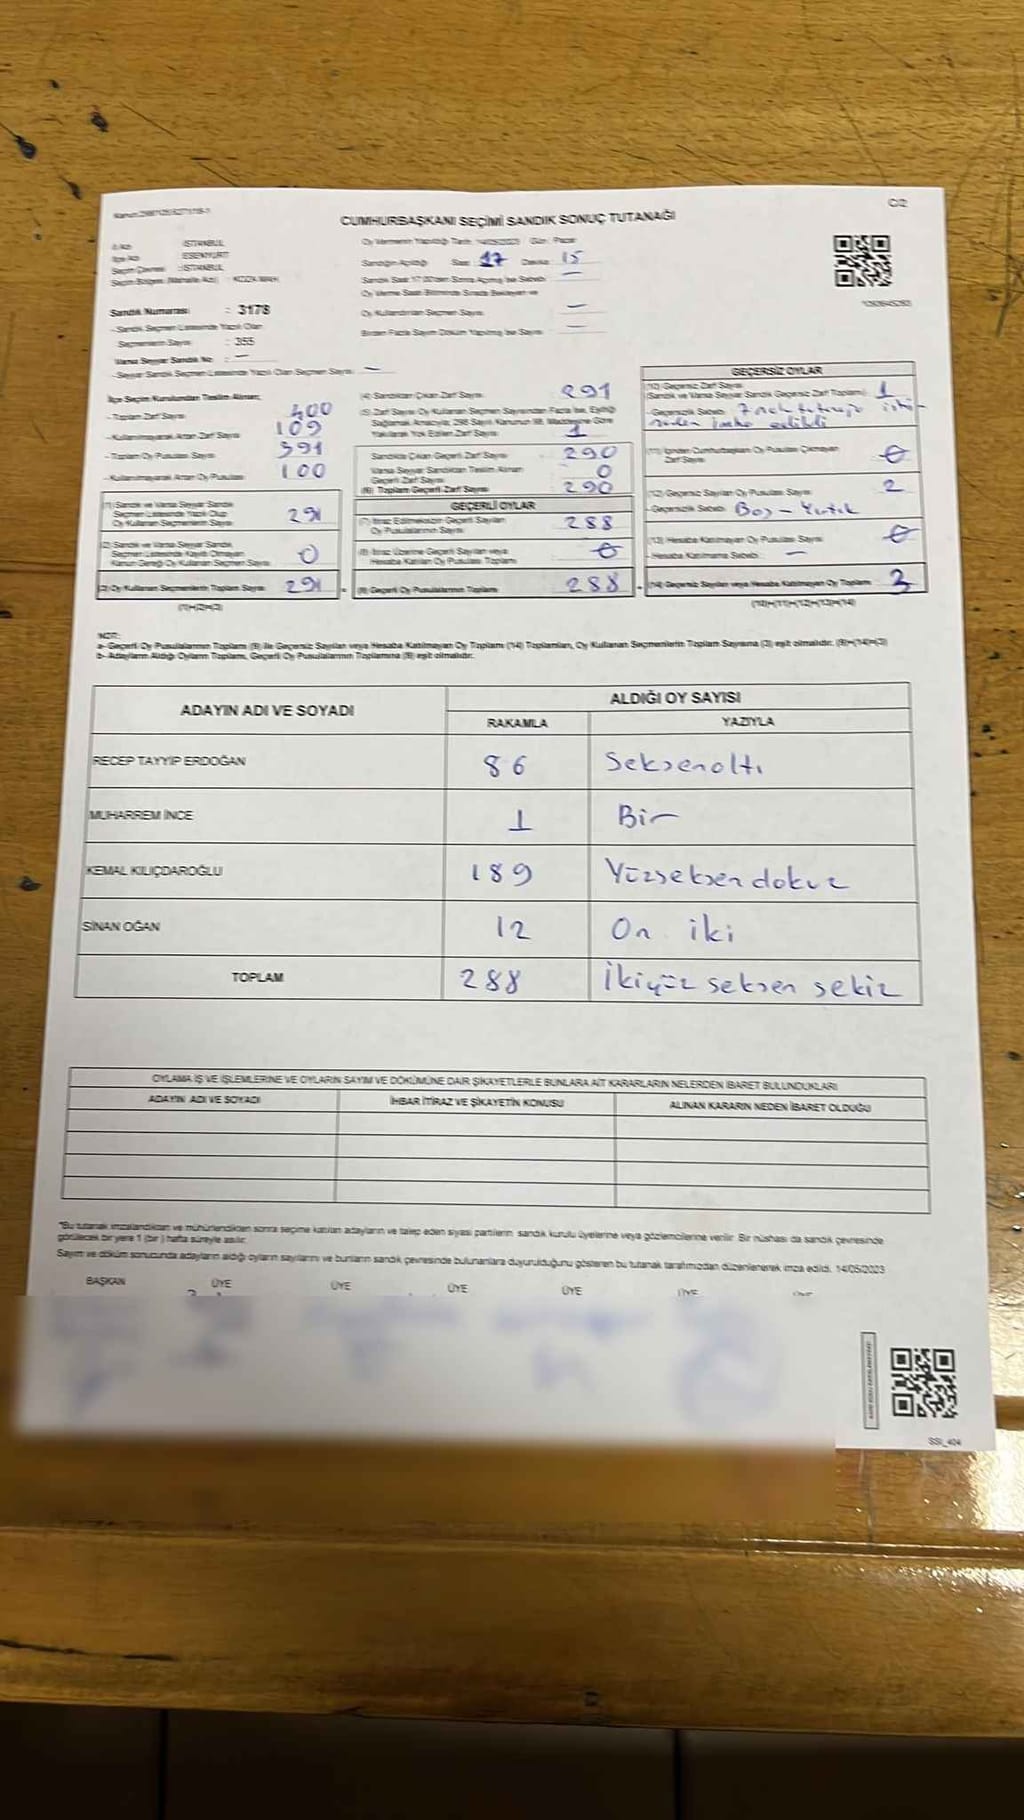 C/2
CUMHURBAŞKANI SEÇİMİ SANDIK SONUÇ TUTANAĞI
İl Adı : İSTANBUL
İlçe Adı : ESENYURT
Seçim Çevresi : İSTANBUL
Seçim Bölgesi (Mahalle Adı) :
Sandık Numarası : 3178
-Sandık Seçmen Listesinde Yazılı Olan
Seçmenlerin Sayısı : 355
Varsa Seyyar Sandık No : —
-Seyyar Sandık Seçmen Listesinde Yazılı Olan Seçmen Sayısı : —
Oy Vermenin Yapıldığı Tarih: 14/05/2023 Gün: Pazar
Sandığın Açıldığı Saat: 17 Dakika: 15
Sandık Saat 17.00'den Sonra Açılmış İse Sebebi: —
Oy Verme Saati Bitiminde Sırada Bekleyen ve
Oy Kullandırılan Seçmen Sayısı: —
Birden Fazla Sayım Döküm Yapılmış İse Sayısı: —
İlçe Seçim Kurulundan Teslim Alınan;
- Toplam Zarf Sayısı 400
- Kullanılmayarak Artan Zarf Sayısı 109
- Toplam Oy Pusulası Sayısı 391
- Kullanılmayarak Artan Oy Pusulası Sayısı 100
(1) Sandık ve Varsa Seyyar Sandık
Seçmen Listesinde Yazılı Olup
Oy Kullanan Seçmenlerin Sayısı 291
(2) Sandık ve Varsa Seyyar Sandık
Seçmen Listesinde Kayıtlı Olmayan
Kanun Gereği Oy Kullanan Seçmen Sayısı 0
(3) Oy Kullanan Seçmenlerin Toplam Sayısı 291
(1)+(2)=(3)
(4) Sandıktan Çıkan Zarf Sayısı 291
(5) Zarf Sayısı Oy Kullanan Seçmen Sayısından Fazla İse, Eşitliği
Sağlamak Amacıyla, 298 Sayılı Kanunun 98. Maddesine Göre
Yakılarak Yok Edilen Zarf Sayısı 1
Sandıkta Çıkan Geçerli Zarf Sayısı 290
Varsa Seyyar Sandıktan Teslim Alınan
Geçerli Zarf Sayısı 0
(6) Toplam Geçerli Zarf Sayısı 290
GEÇERLİ OYLAR
(7) İtiraz Edilmeksizin Geçerli Sayılan
Oy Pusulalarının Sayısı 288
(8) İtiraz Üzerine Geçerli Sayılan veya
Hesaba Katılan Oy Pusulası Toplamı 0
(9) Geçerli Oy Pusulalarının Toplamı 288
GEÇERSİZ OYLAR
(10) Geçersiz Zarf Sayısı
(Sandık ve Varsa Seyyar Sandık Geçersiz Zarf Toplamı) : 1
-Geçersizlik Sebebi:
imha edildi
(11) İçinden Cumhurbaşkanı Oy Pusulası Çıkmayan
Zarf Sayısı 0
(12) Geçersiz Sayılan Oy Pusulası Sayısı 2
-Geçersizlik Sebebi: Boş - Yırtık
(13) Hesaba Katılmayan Oy Pusulası Sayısı 0
-Hesaba Katılmama Sebebi: —
(14) Geçersiz Sayılan veya Hesaba Katılmayan Oy Toplamı 3
(10)+(11)+(12)+(13)=(14)
NOT:
a- Geçerli Oy Pusulalarının Toplamı (9) ile Geçersiz Sayılan veya Hesaba Katılmayan Oy Toplamı (14) Toplamları, Oy Kullanan Seçmenlerin Toplam Sayısına (3) eşit olmalıdır. (9)+(14)=(3)
b- Adayların Aldığı Oyların Toplamı, Geçerli Oy Pusulalarının Toplamına (9) eşit olmalıdır.
ADAYIN ADI VE SOYADI
ALDIĞI OY SAYISI
RAKAMLA YAZIYLA
RECEP TAYYİP ERDOĞAN 86 Seksenaltı
MUHARREM İNCE 1 Bir
KEMAL KILIÇDAROĞLU 189 Yüzseksendokuz
SİNAN OĞAN 12 On iki
TOPLAM 288 İkiyüz seksen sekiz
OYLAMA İŞ VE İŞLEMLERİNE VE OYLARIN SAYIM VE DÖKÜMÜNE DAİR ŞİKAYETLERLE BUNLARA AİT KARARLARIN NELERDEN İBARET BULUNDUKLARI
ADAYIN ADI VE SOYADI İHBAR İTİRAZ VE ŞİKAYETİN KONUSU ALINAN KARARIN NEDEN İBARET OLDUĞU
*Bu tutanak imzalandıktan ve mühürlendikten sonra seçime katılan adayların ve talep eden siyasi partilerin sandık kurulu üyelerine veya gözlemcilerine verilir. Bir nüshası da sandık çevresinde
görülecek bir yere 1 (bir) hafta süreyle asılır.
Sayım ve döküm sonucunda adayların aldığı oyların sayılarını ve bunların sandık çevresinde bulunanlara duyurulduğunu gösteren bu tutanak tarafımızdan düzenlenerek imza edildi. 14/05/2023
BAŞKAN ÜYE ÜYE ÜYE ÜYE ÜYE
SSI_404